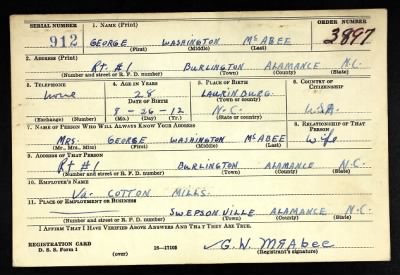 SERIAL NUMBER 1. NAME (Print) ORDER NUMBER
912 GEORGE WASHINGTON McABEE 3897
(First) (Middle) (Last)
2. ADDRESS (Print)
Rt #1 BURLINGTON ALAMANCE N.C.
(Number and street or R. F. D. number) (Town) (County) (State)
3. TELEPHONE 4. AGE IN YEARS 5. PLACE OF BIRTH 6. COUNTRY OF CITIZENSHIP
none 28 LAURINBURG
DATE OF BIRTH (Town or county)
8-26-12 N.C. USA
(Exchange) (Number) (Mo.) (Day) (Yr.) (State or country)
7. NAME OF PERSON WHO WILL ALWAYS KNOW YOUR ADDRESS 8. RELATIONSHIP OF THAT PERSON
MRS. GEORGE WASHINGTON McABEE Wife
(Mr., Mrs., Miss) (First) (Middle) (Last)
9. ADDRESS OF THAT PERSON
Rt #1 BURLINGTON ALAMANCE N.C.
(Number and street or R. F. D. number) (Town) (County) (State)
10. EMPLOYER'S NAME
Va. COTTON MILLS.
11. PLACE OF EMPLOYMENT OR BUSINESS
SWEPSONVILLE ALAMANCE N.C.
(Number and street or R. F. D. number) (Town) (County) (State)
I AFFIRM THAT I HAVE VERIFIED ABOVE ANSWERS AND THAT THEY ARE TRUE.
REGISTRATION CARD
D. S. S. Form 1 16—17105 G. W. McAbee
(over) (Registrant's signature)